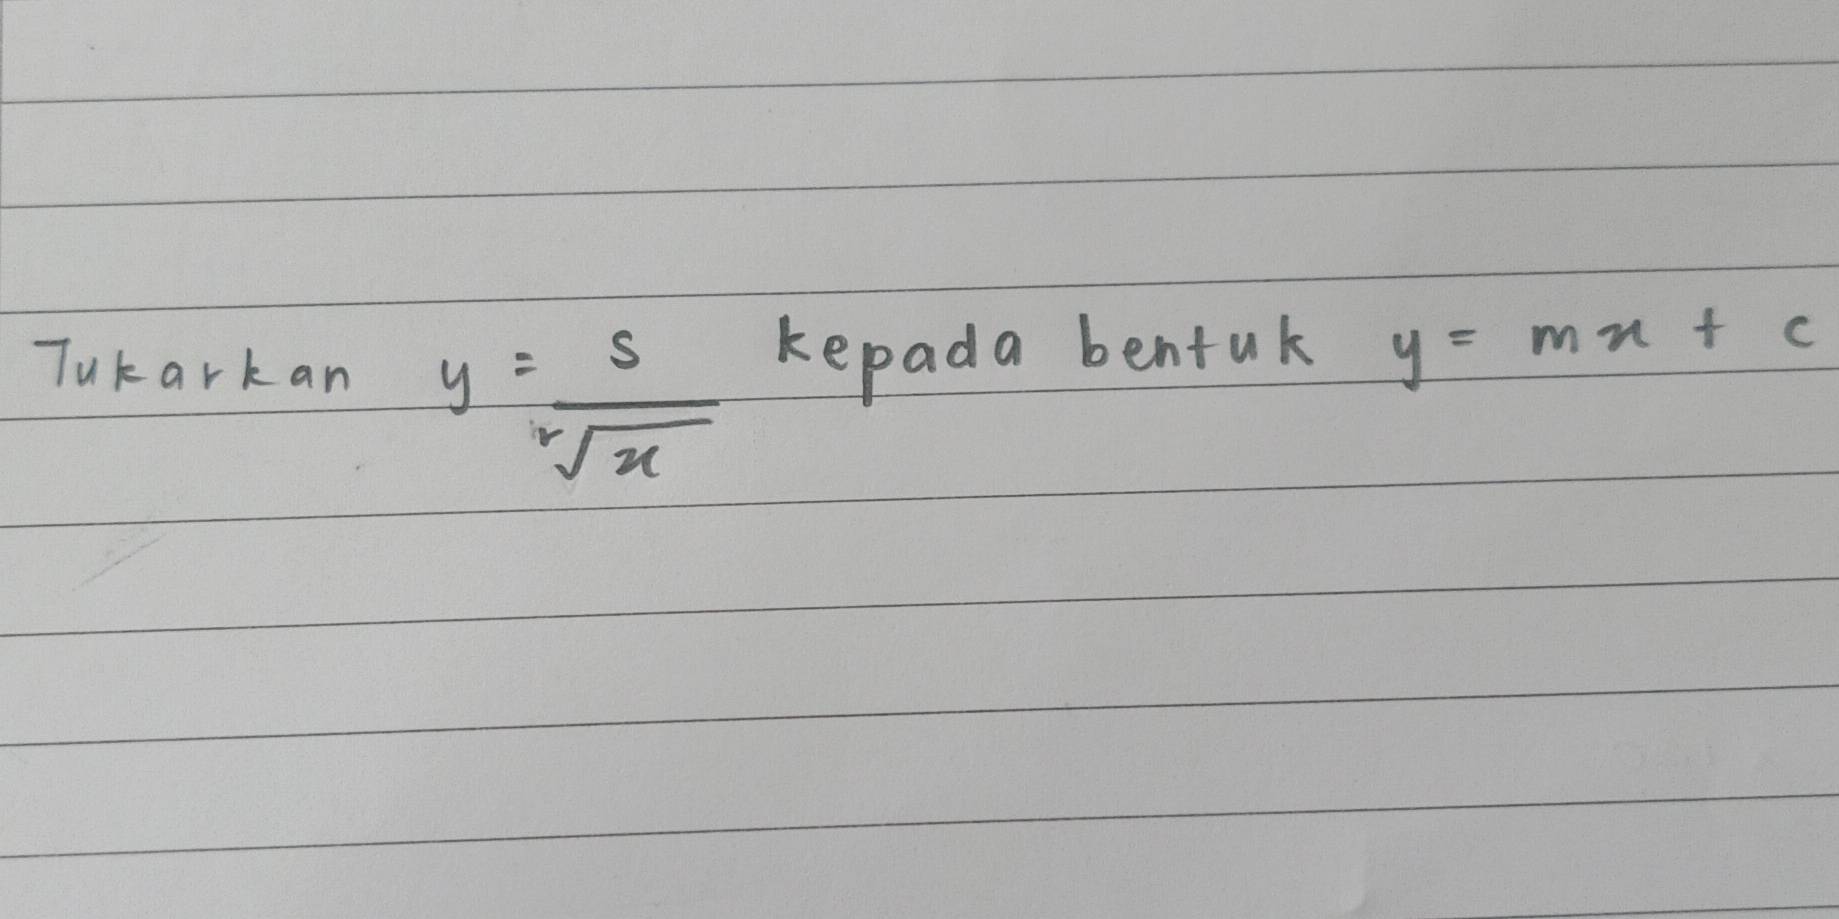 Tukarkan y = s / ʳ√x kepada bentuk y = mx + c